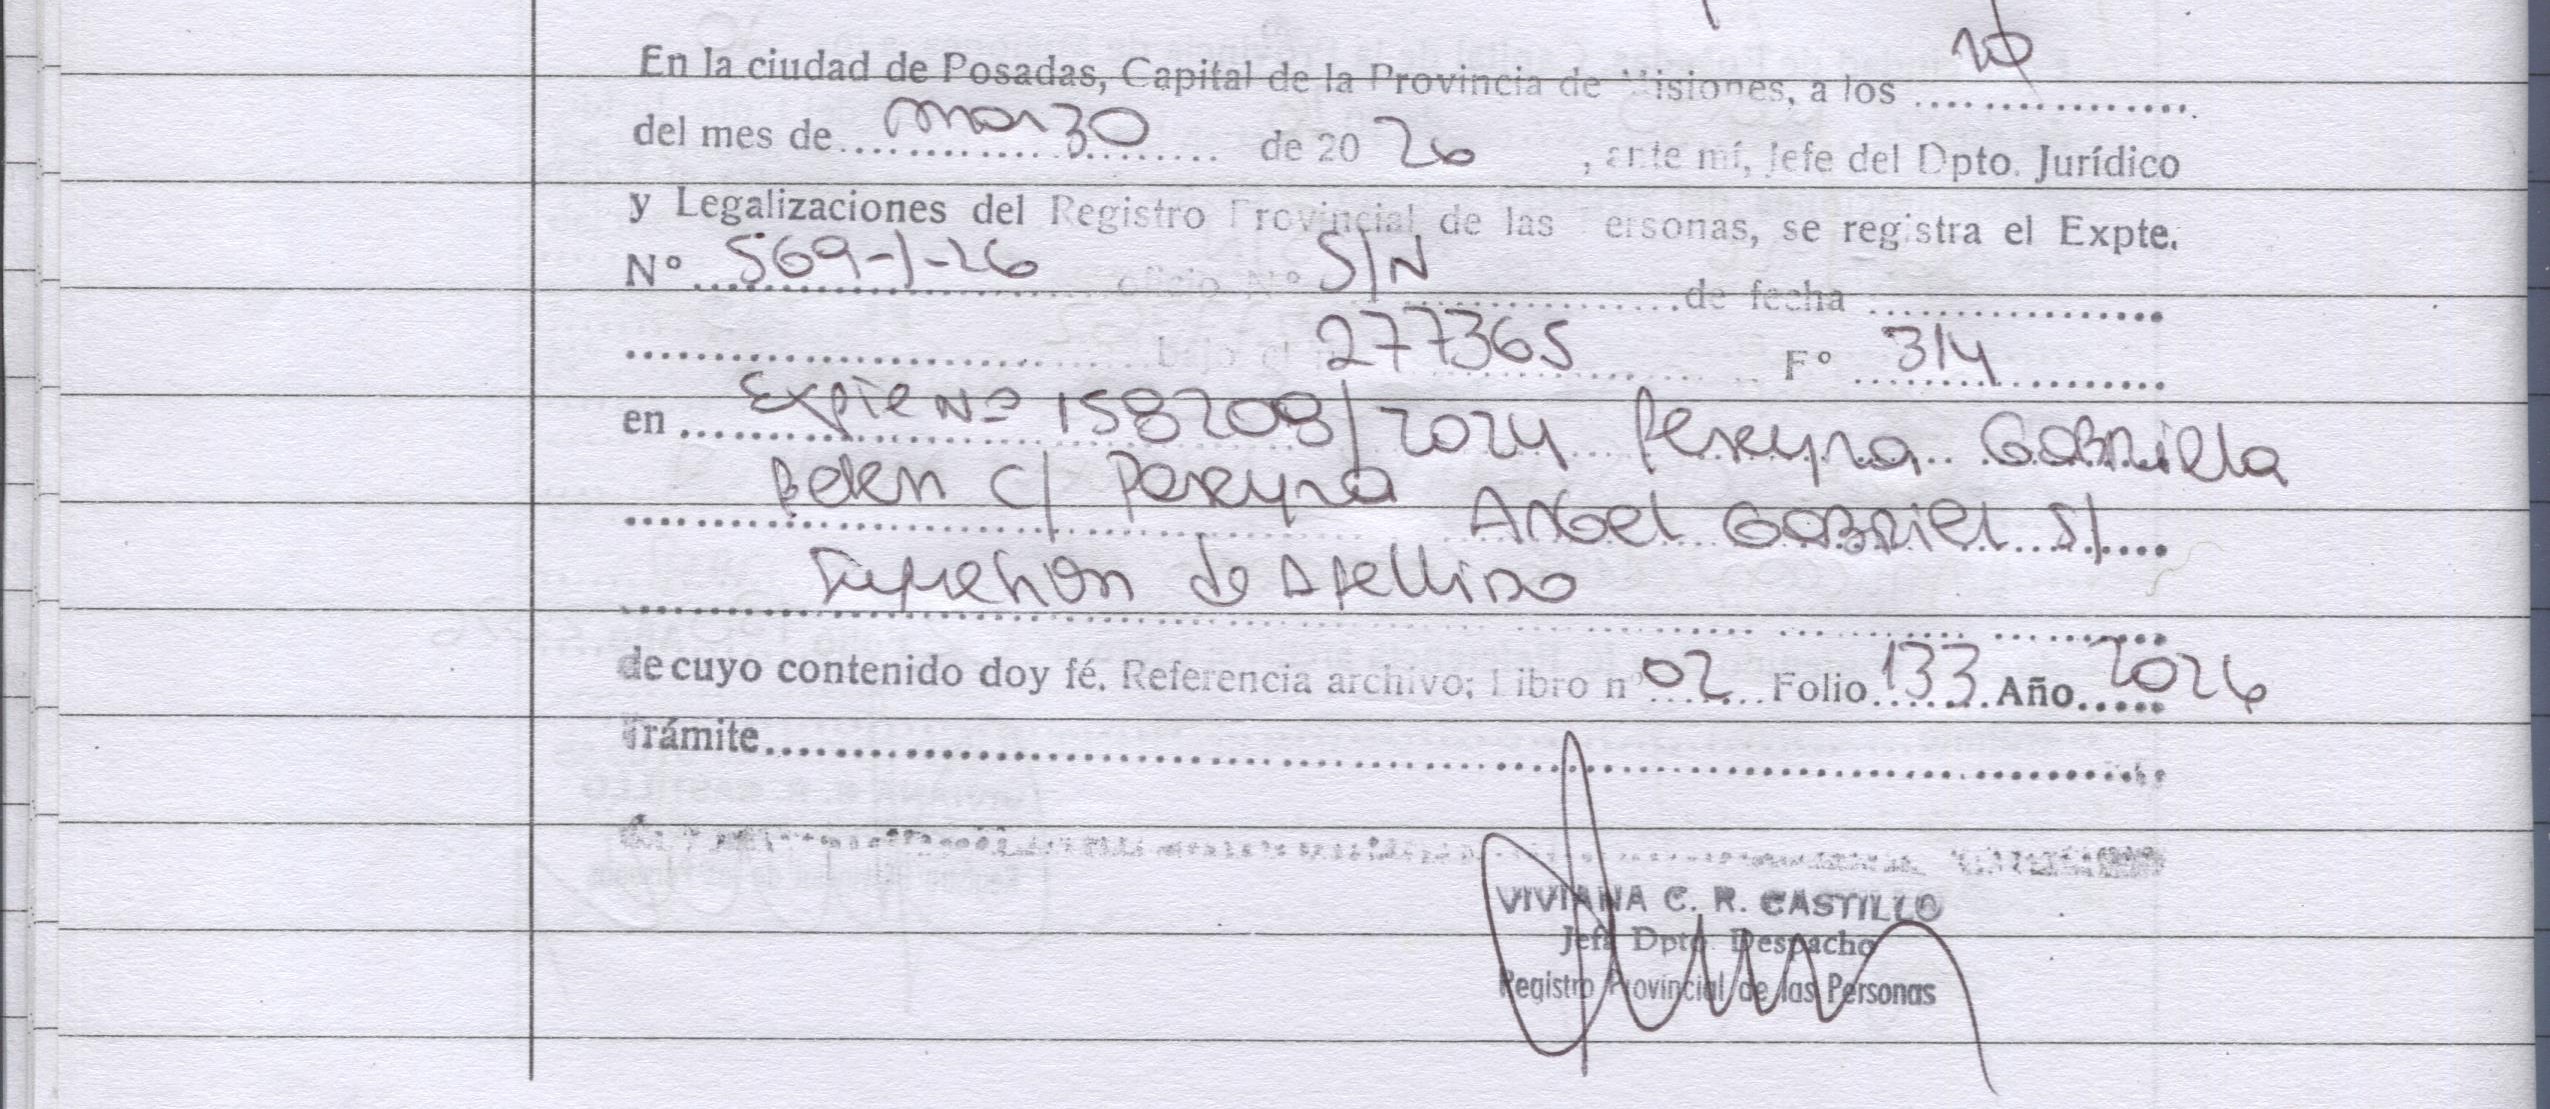 En la ciudad de Posadas, Capital de la Provincia de Misiones, a los ................
del mes de marzo de 2026, ante mí, Jefe del Dpto. Jurídico
y Legalizaciones del Registro Provincial de las Personas, se registra el Expte.
Nº 569-1-26 oficio Nº S/N de fecha ................
................ bajo el 277365 Fº 314
en Expte Nº 158208/2024 Pereyra Gabriela
Belen c/ Pereyra Angel Gabriel s/
Supresion de Apellido
de cuyo contenido doy fé. Referencia archivo; Libro nº 02 Folio 133 Año 2026
Trámite................
VIVIANA C. R. CASTILLO
Jefa Dpto Despacho
Registro Provincial de las Personas